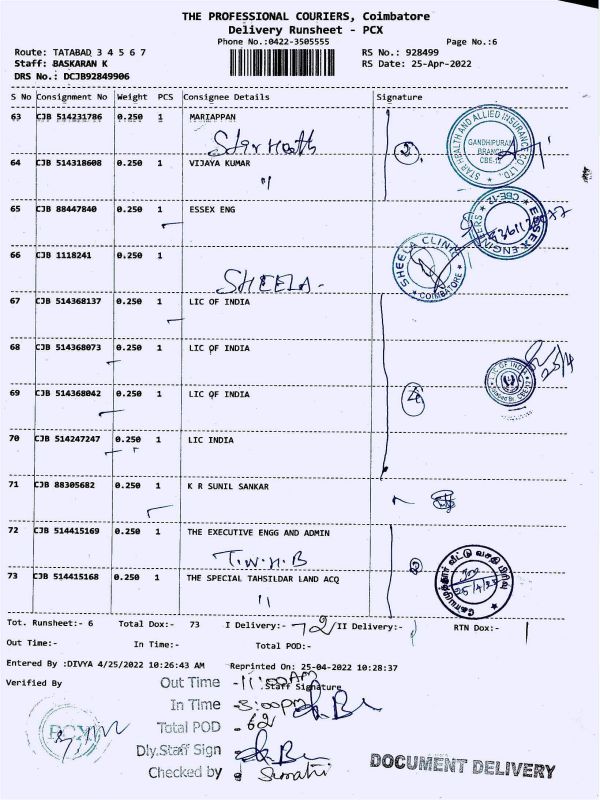 THE PROFESSIONAL COURIERS, Coimbatore
Delivery Runsheet - PCX
Phone No.:0422-3505555
Page No.:6
Route: TATABAD 3 4 5 6 7
RS No.: 928499
Staff: BASKARAN K
RS Date: 25-Apr-2022
DRS No.: DCJB92849906
S No Consignment No Weight PCS Consignee Details Signature
63 CJB 514231786 0.250 1 MARIAPPAN
Star Health
STAR HEALTH AND ALLIED INSURANCE CO. LTD.,
GANDHIPURAM
BRANCH
CBE-12
2
64 CJB 514318608 0.250 1 VIJAYA KUMAR
"
65 CJB 88447840 0.250 1 ESSEX ENG
ESSEX ENGINEERS CBE-12
66 CJB 1118241 0.250 1
SHEELA -
SHEELA CLINIC
COIMBATORE
67 CJB 514368137 0.250 1 LIC OF INDIA
68 CJB 514368073 0.250 1 LIC OF INDIA
LIC OF INDIA
25/4
69 CJB 514368042 0.250 1 LIC OF INDIA
4
70 CJB 514247247 0.250 1 LIC INDIA
71 CJB 88305682 0.250 1 K R SUNIL SANKAR
72 CJB 514415169 0.250 1 THE EXECUTIVE ENGG AND ADMIN
T.N.H.B
2
73 CJB 514415168 0.250 1 THE SPECIAL TAHSILDAR LAND ACQ
"
Tot. Runsheet:- 6 Total Dox:- 73 I Delivery:- 72 II Delivery:- RTN Dox:-
Out Time:- In Time:- Total POD:-
Entered By :DIVYA 4/25/2022 10:26:43 AM Reprinted On: 25-04-2022 10:28:37
Verified By
Staff Signature
Out Time - 11:00AM
In Time - 3:00pm
Total POD - 62
PCX
Dly.Staff Sign
Checked by
DOCUMENT DELIVERY